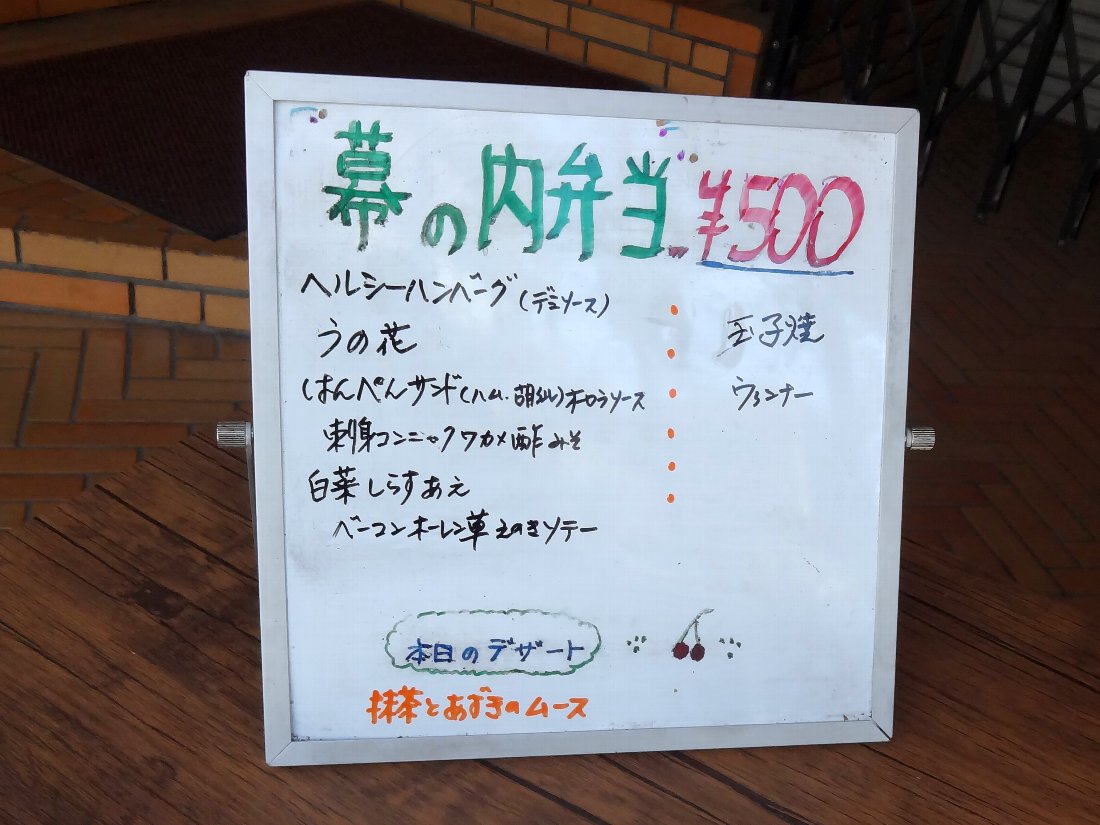 幕の内弁当 ¥500
ヘルシーハンバーグ(デミソース)
うの花
はんぺんサンド(ハム、胡瓜)オーロラソース
刺身コンニャクワカメ酢みそ
白菜しらすあえ
ベーコンホーレン草えのきソテー
玉子焼
ウィンナー
本日のデザート
抹茶とあずきのムース